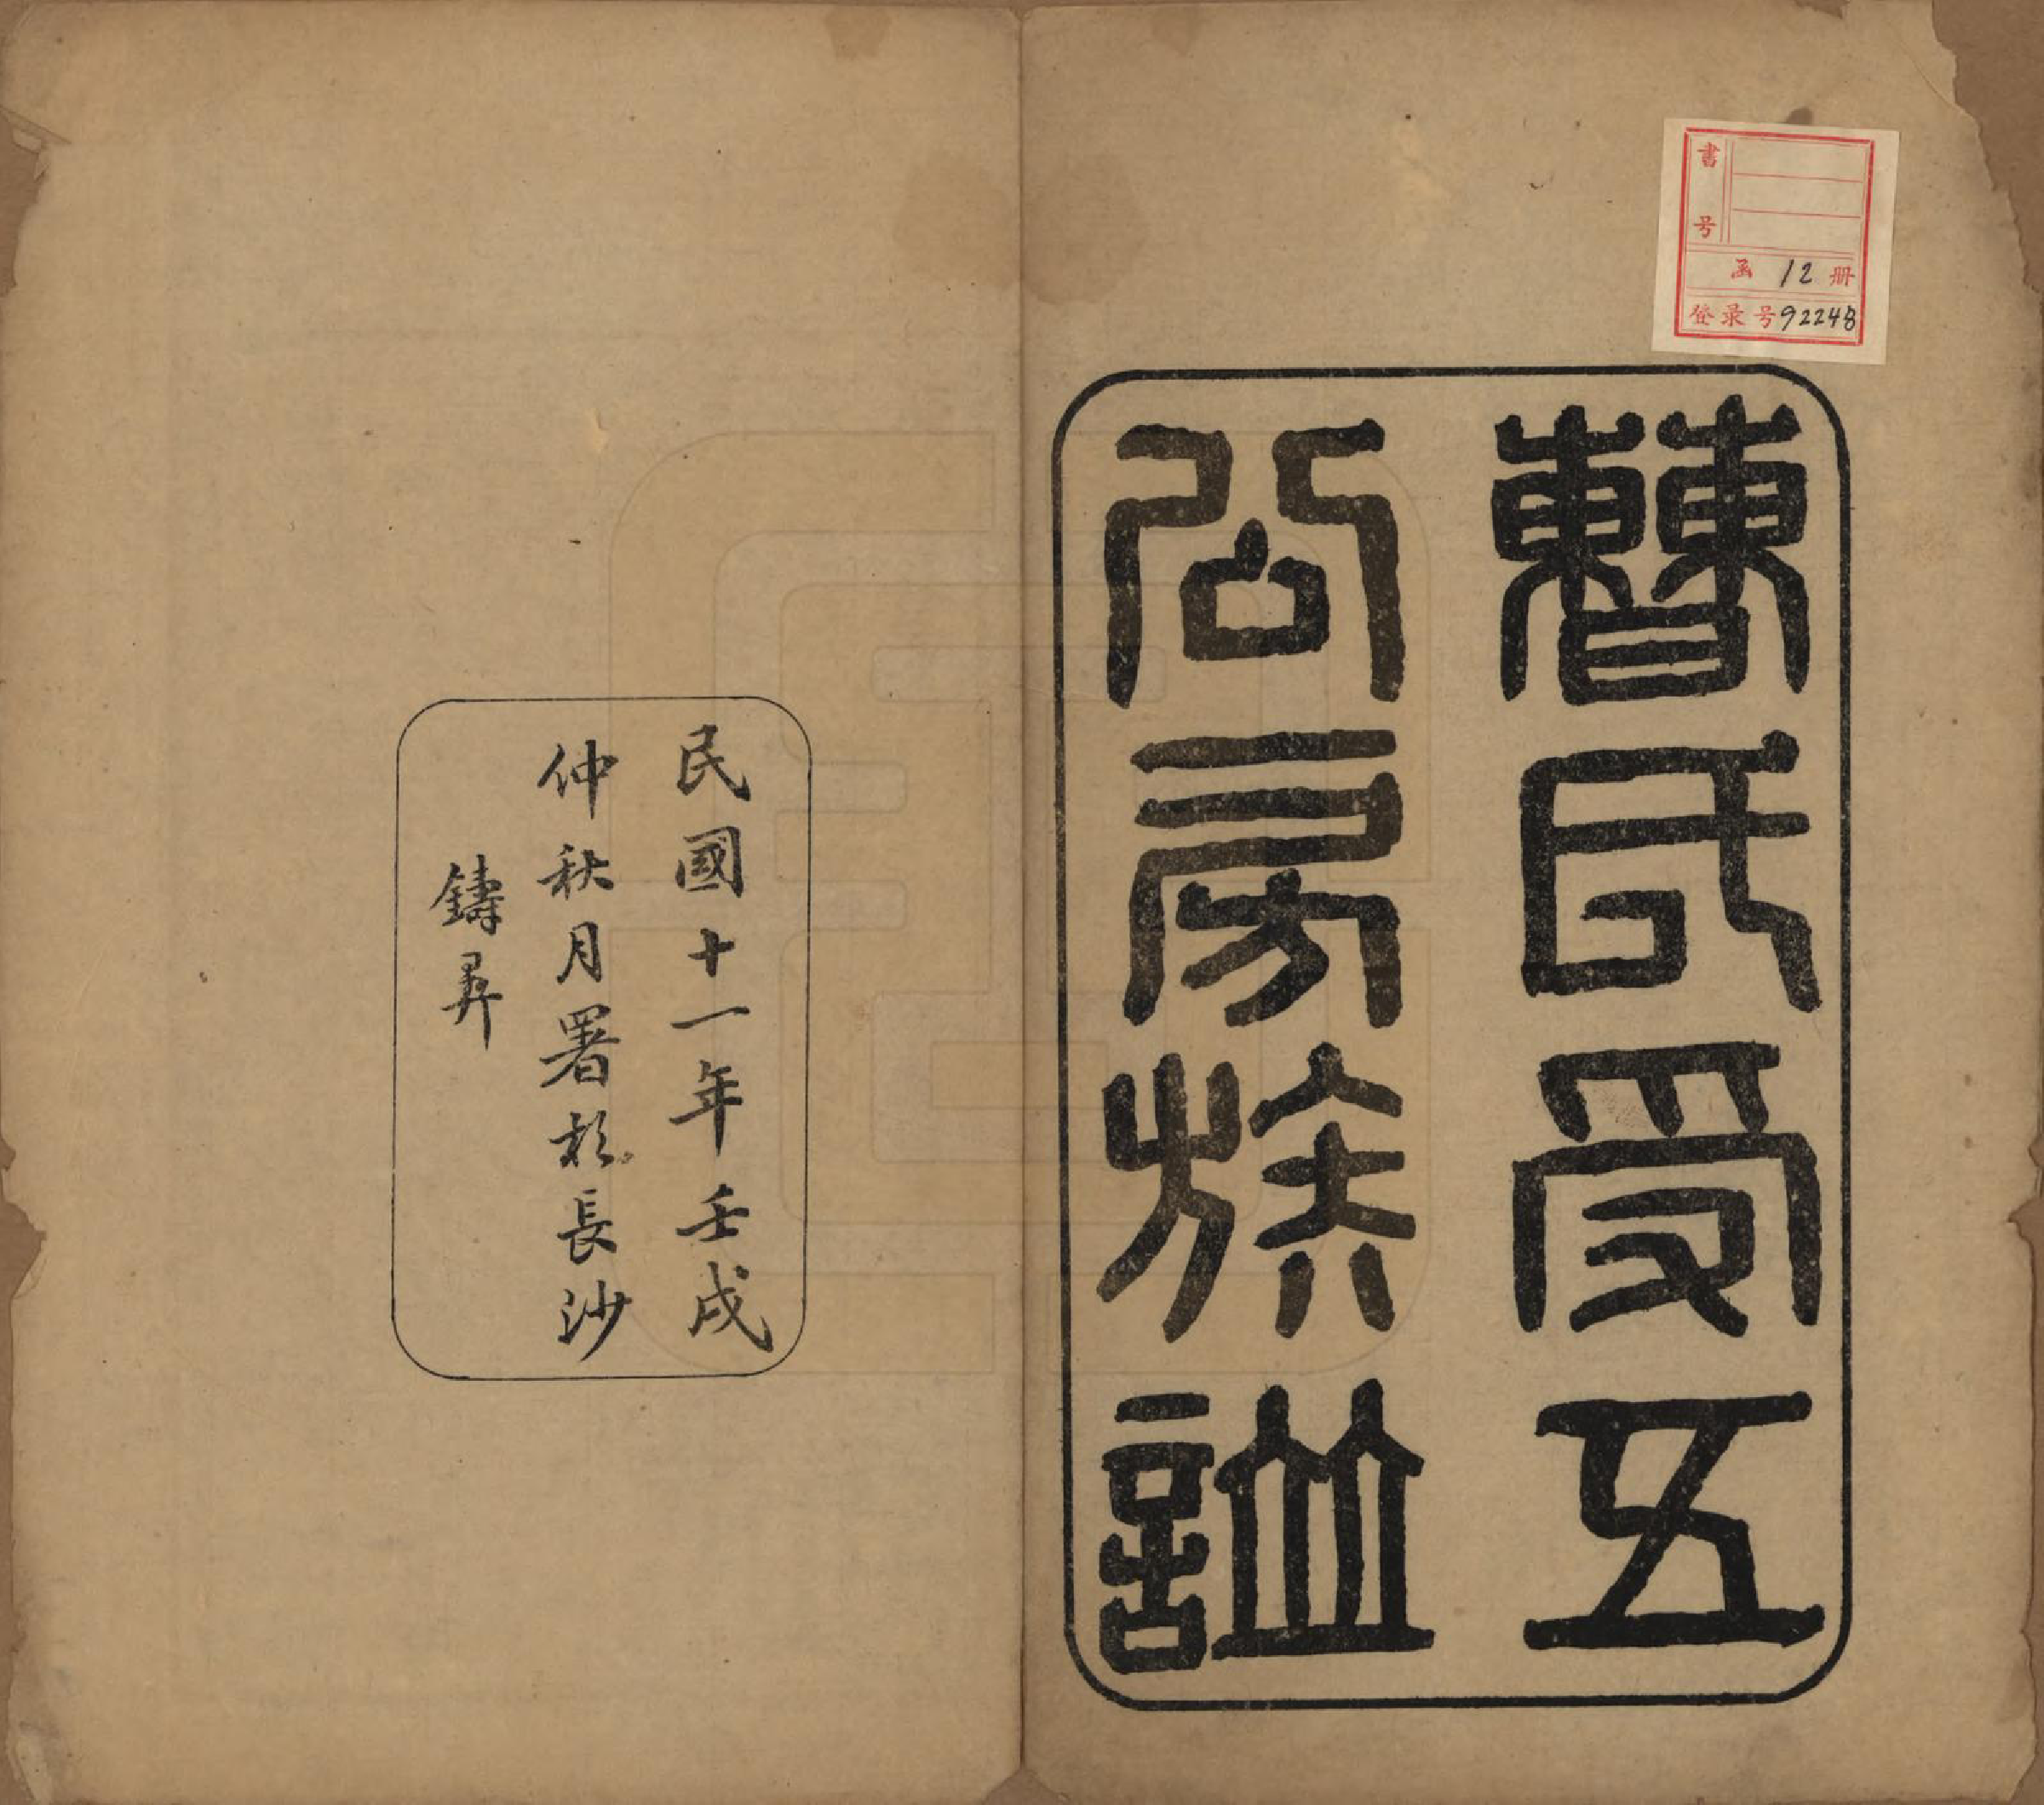 曹氏受五
公房族譜
書号
函 12 册
登录号 92248
民國十一年壬戌
仲秋月署於長沙
鑄昪